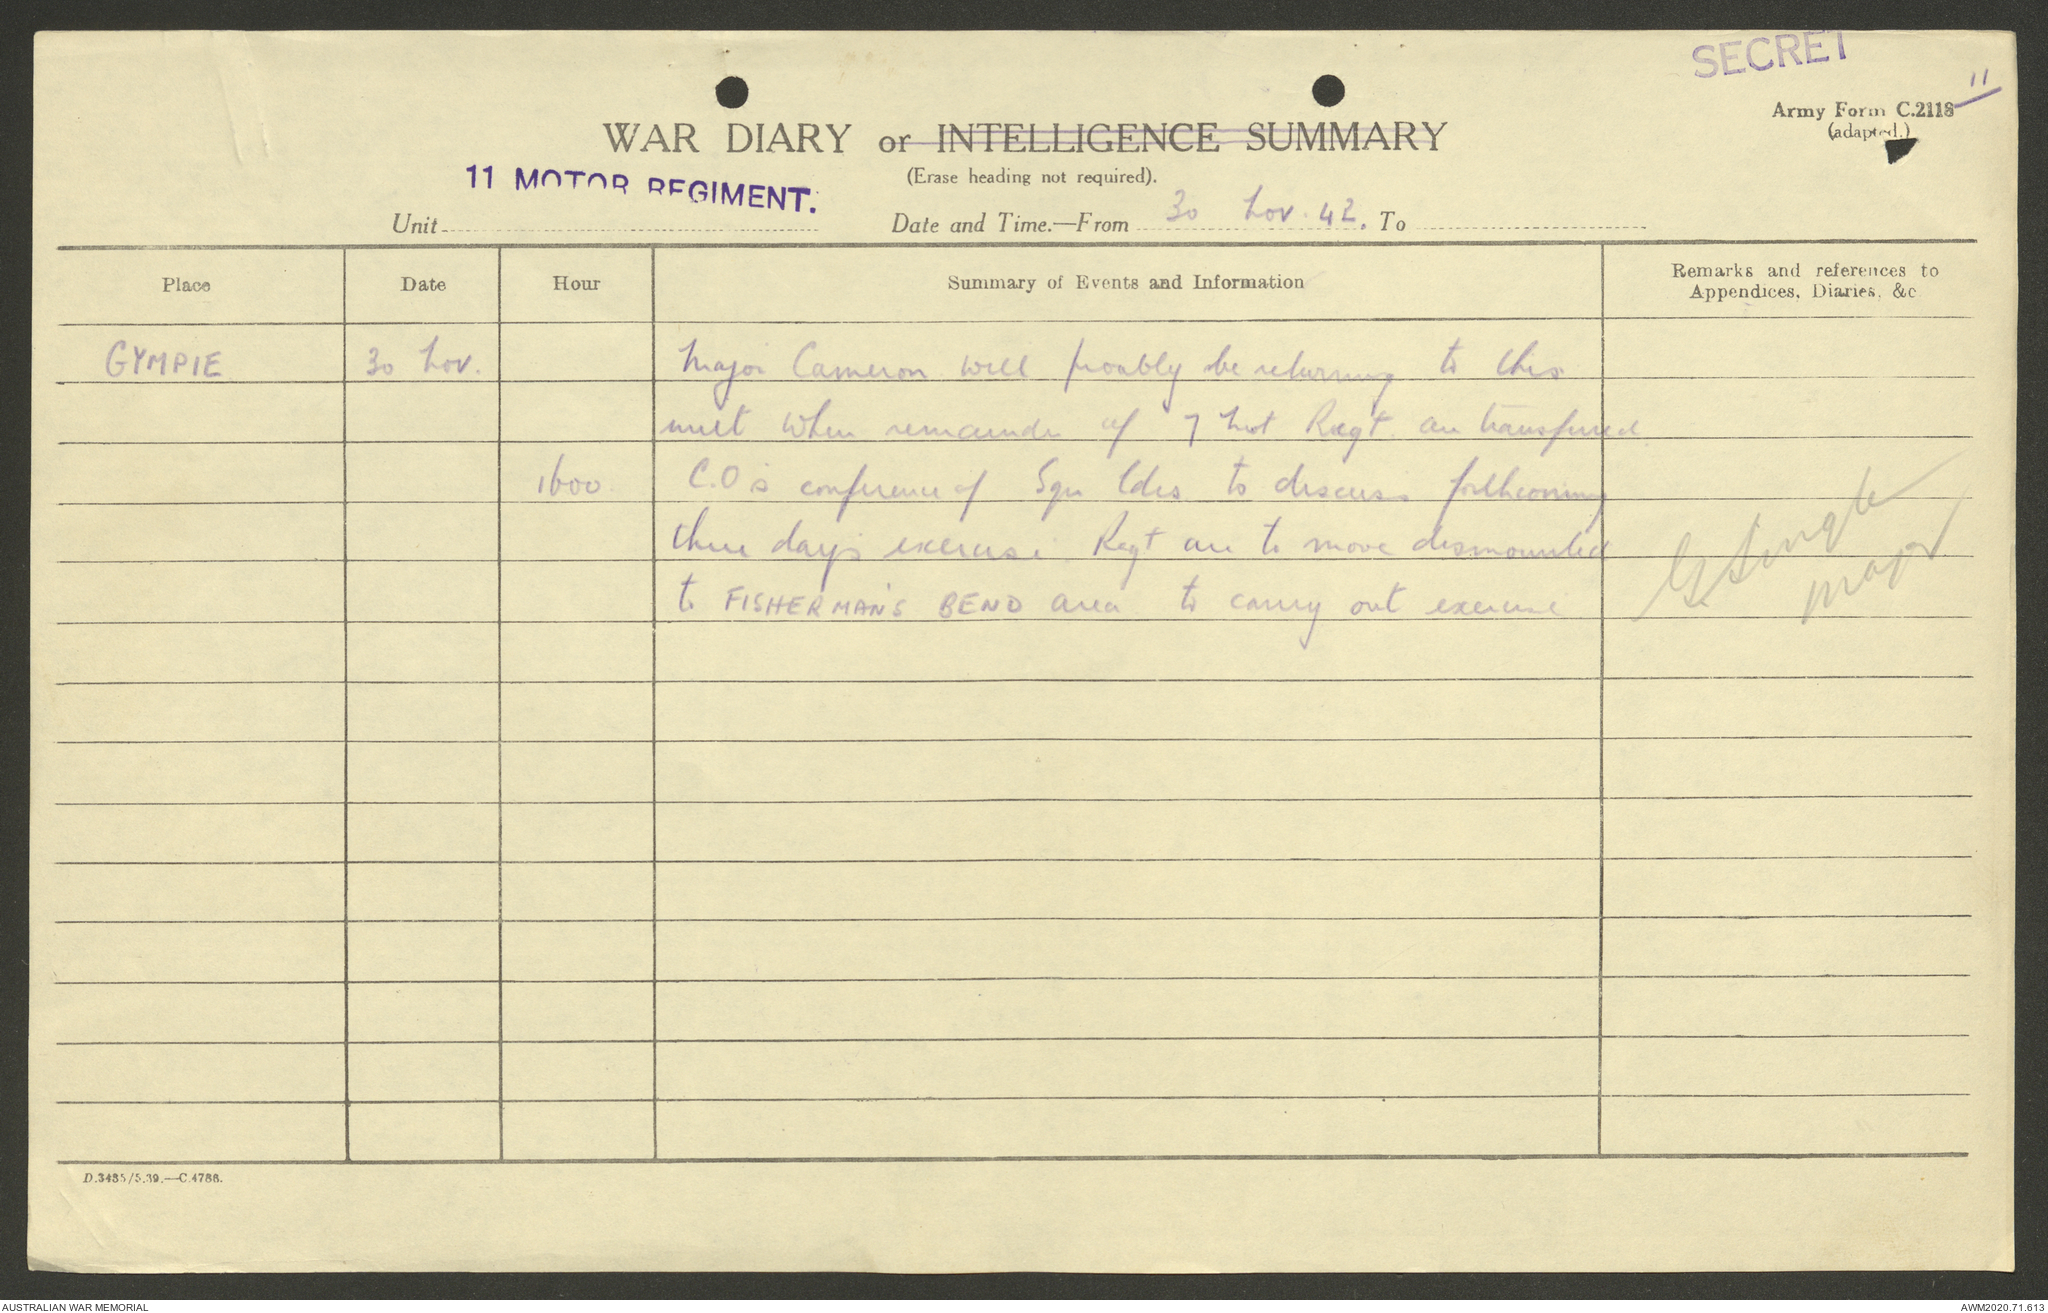 SECRET
11
Army Form C.2118
(adapted.)
WAR DIARY or INTELLIGENCE SUMMARY
(Erase heading not required).
11 MOTOR REGIMENT.
Unit
Date and Time.—From 30 Nov. 42. To
Place
Date
Hour
Summary of Events and Information
Remarks and references to
Appendices, Diaries, &c
GYMPIE 30 Nov. Major Cameron will proably be returning to this
unit when remainder of 7 Mot Regt. are transferred
1600 C.O's conference of Sqn Ldrs to discuss forthcoming
three days exercise. Regt are to move dismounted
to FISHERMAN'S BEND area to carry out exercise
Major
D.3485/5.39.—C.4788.
AUSTRALIAN WAR MEMORIAL
AWM2020.71.613